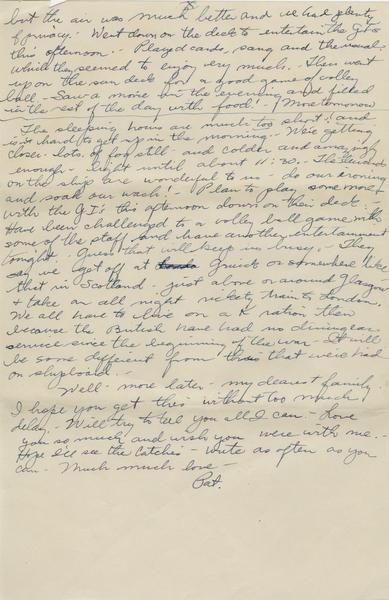 but the air was much better and we had plenty
of privacy. Went down on the deck to entertain the GI's
this afternoon. Played cards, sang and the usual
which they seemed to enjoy very much. Then went
up on the sun deck for a good game of volley
ball - Saw a movie in the evening and filled
in the rest of the day with food! - (More tomorrow
The sleeping hours are much too short! and
is it hard to get up in the morning - We're getting
closer. lots of fog still - and colder and amazingly
enough - light until about 11:30. The
on the ship are wonderful to us - do our ironing
and soak our wash! - Plan to play some more
with the G.I's this afternoon down on their deck. -
Have been challenged to a volley ball game with
some of the staff and have another entertainment
tonight. Guess that will keep us busy. - They
say we get off at or somewhere like
that in Scotland. just above or around Glasgow
& take an all night rickety train to London.
We all have to live on a K ration then
because the British have had no dining car
service since the beginning of the war - It will
be some different from this that we've had
on shipboard. -
Well - more later - my dearest family.
I hope you get this without too much
delay. - Will try to tell you all I can - Love
you so much and wish you were with me. -
Hope I'll see the - write as often as you
can - Much much love -
Pat.